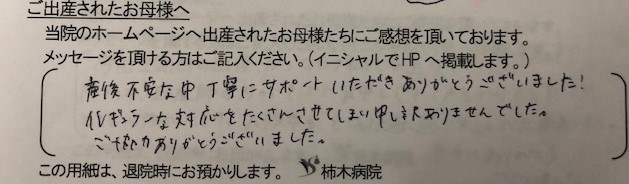 ご出産されたお母様へ
当院のホームページへ出産されたお母様たちにご感想を頂いております。
メッセージを頂ける方はご記入ください。(イニシャルでHPへ掲載します。)
産後不安な中 丁寧にサポートいただきありがとうございました!
イレギュラーな対応をたくさんさせてしまい申し訳ありませんでした。
ご協力ありがとうございました。
この用紙は、退院時にお預かりします。 柿木病院